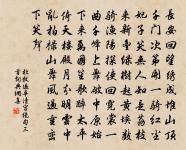 長安回望繡成堆山頂
千門次第開一騎紅塵
妃子笑無人知是荔枝
來新豐綠樹起黃埃數
騎漁陽探使回霓裳一
曲千峰上舞破中原始
下來萬國笙歌醉太平
倚天樓殿月分明雲中
亂拍祿山舞風過重巒
下笑聲
杜牧過華清宮絕句三
首詞典網書